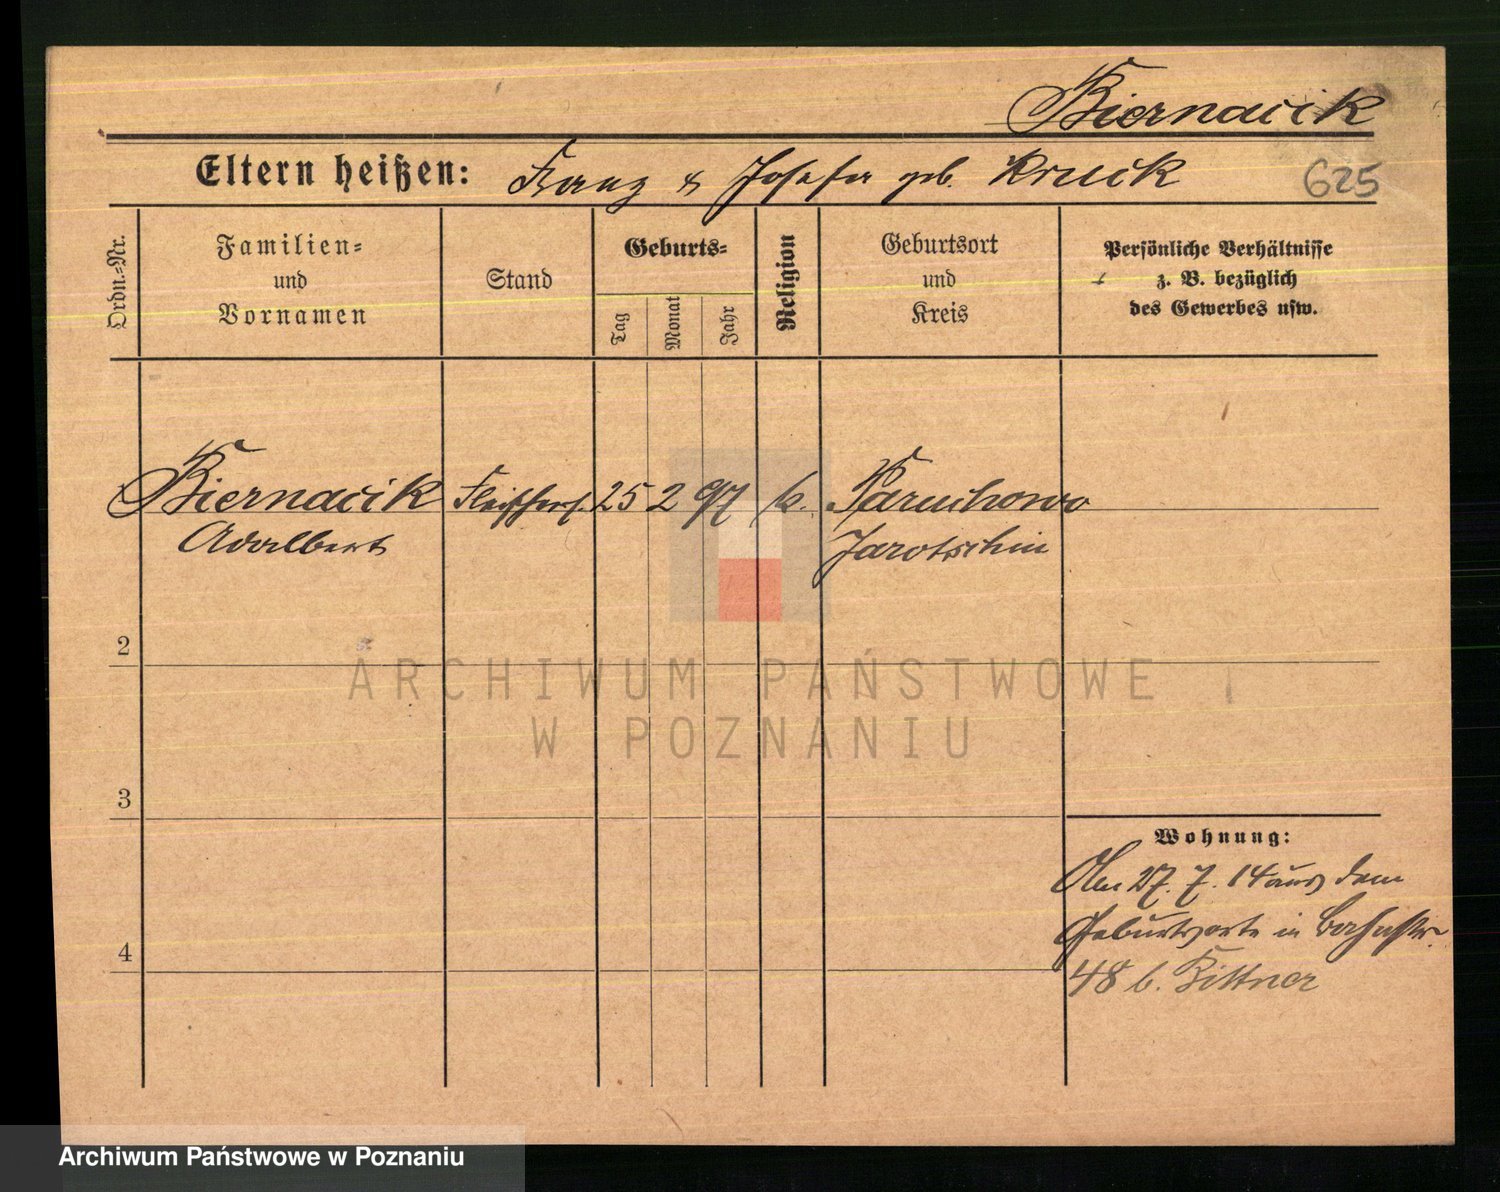 Biernacik
Eltern heißen: Franz & Josefa geb. Kruck
625
Ordn.=Nr.
Familien=
und
Vornamen
Stand
Geburts=
Tag
Monat
Jahr
Religion
Geburtsort
und
Kreis
Persönliche Verhältnisse
z. B. bezüglich
des Gewerbes usw.
Biernacik Fleischerl. 25 2 97 k. Paruchowo
Adalbert Jarotschin
2
3
4
Wohnung:
Am 27. 7. 14 aus dem
Geburtsorte in Bahnstr.
48 b. Bittner
ARCHIWUM PAŃSTWOWE
W POZNANIU
Archiwum Państwowe w Poznaniu